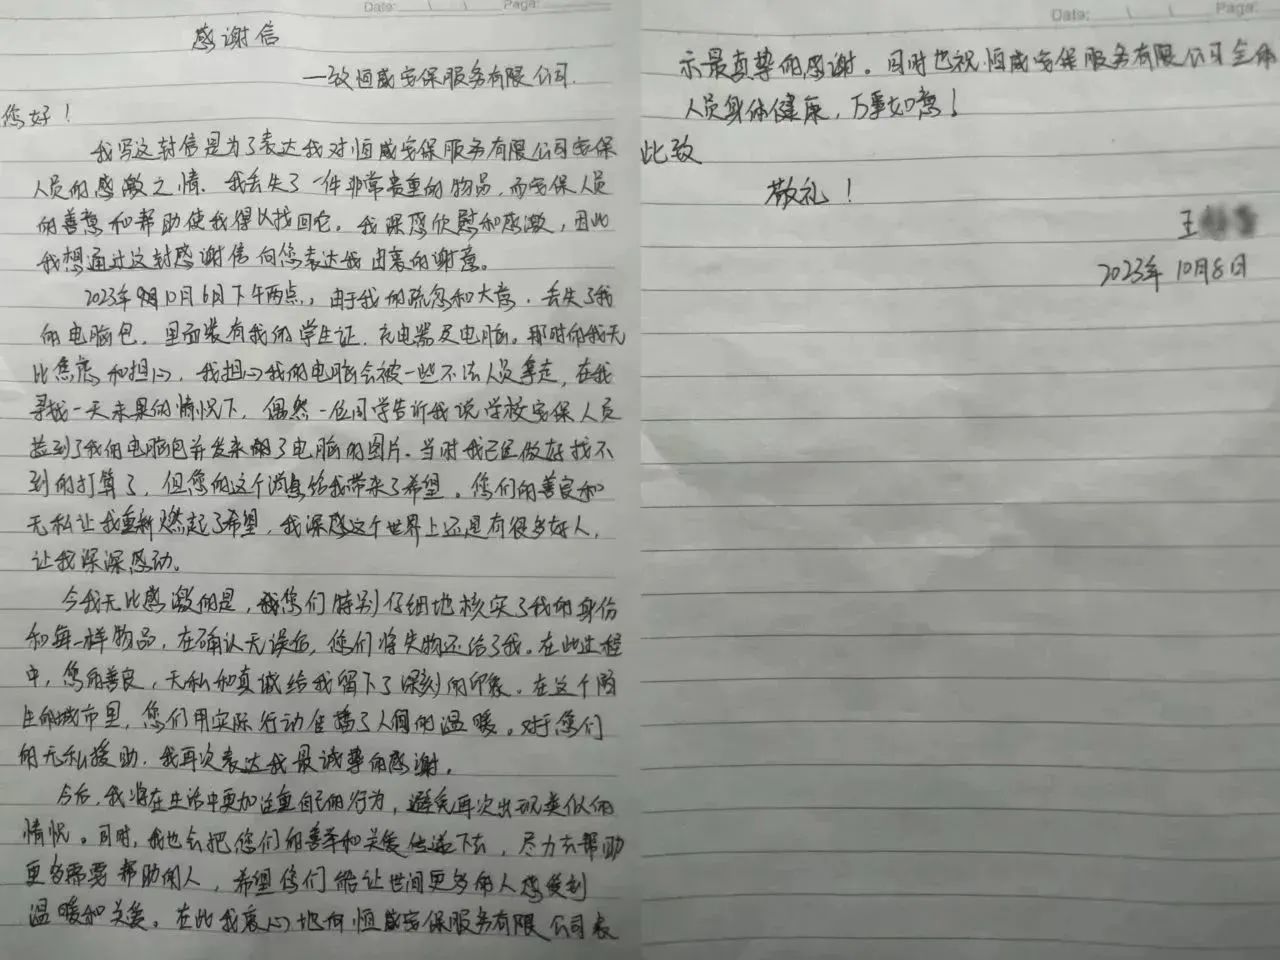 Date:
Page:
感谢信
—致恒威安保服务有限公司.
您好！
我写这封信是为了表达我对恒威安保服务有限公司安保
人员的感激之情。我丢失了一件非常贵重的物品，而安保人员
的善意和帮助使我得以找回它。我深感欣慰和感激，因此
我想通过这封感谢信向您表达我由衷的谢意。
2023年10月6日下午两点，由于我的疏忽和大意，丢失了我
的电脑包，里面装有我的学生证、充电器及电脑。那时的我无
比焦虑和担心，我担心我的电脑会被一些不法人员拿走，在我
寻找一天未果的情况下，偶然一位同学告诉我说学校安保人员
捡到了我的电脑包并发来了电脑的图片。当时我已经做好找不
到的打算了，但您的这个消息给我带来了希望。您们的善良和
无私让我重新燃起了希望，我深感这个世界上还是有很多好人，
让我深深感动。
令我无比感激的是，您们特别仔细地核实了我的身份
和每一样物品，在确认无误后，您们将失物还给了我。在此过程
中，您的善良，无私和真诚给我留下了深刻的印象。在这个陌
生的城市里，您们用实际行动传播了人间的温暖。对于您们
的无私援助，我再次表达我最诚挚的感谢。
今后，我将在生活中更加注重自己的行为，避免再次出现类似的
情况。同时，我也会把您们的善举和关爱传递下去，尽力去帮助
更多需要帮助的人，希望您们能让世间更多的人感受到
温暖和关爱。在此我衷心地向恒威安保服务有限公司表
Date:
Page:
示最真挚的感谢。同时也祝恒威安保服务有限公司全体
人员身体健康，万事如意！
此致
敬礼！
王
2023年10月8日